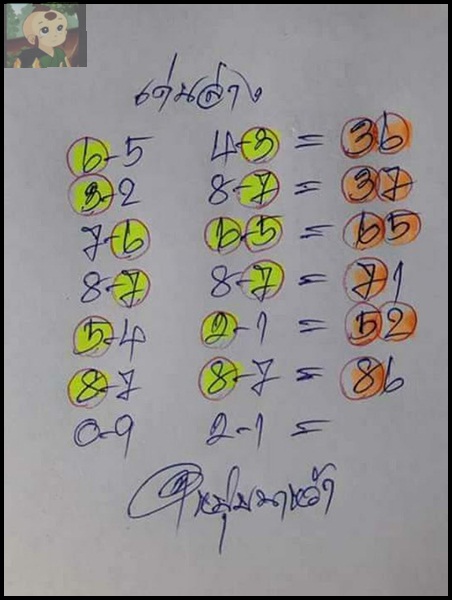 เด่นล่าง
6-5 4-3 = 36
3-2 8-7 = 37
7-6 6-5 = 65
8-7 8-7 = 71
5-4 2-1 = 52
8-7 8-7 = 86
0-9 2-1 =